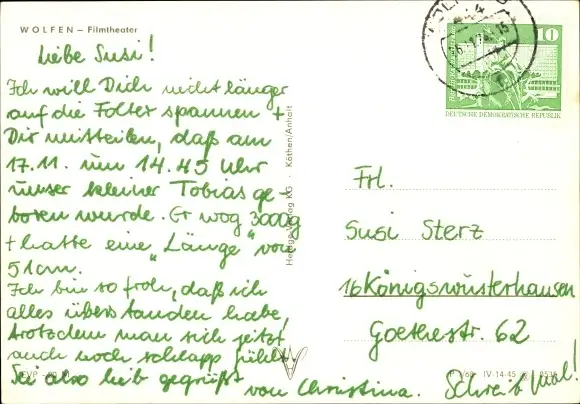 WOLFEN – Filmtheater
Liebe Susi!
Ich will Dich nicht länger
auf die Folter spannen +
Dir mitteilen, daß am
17.11. um 14.45 Uhr
unser kleiner Tobias ge-
boren wurde. Er wog 3000g
+ hatte eine "Länge" von
51cm.
Ich bin so froh, daß ich
alles überstanden habe,
trotzdem man sich jetzt
auch noch schlapp fühlt.
Sei also lieb gegrüßt von Christina. Schreib mal!
Verlag KG · Köthen/Anhalt
10
DEUTSCHE DEMOKRATISCHE REPUBLIK
Frl.
Susi Sterz
16 Königswusterhausen
Goethestr. 62
IV-14-45